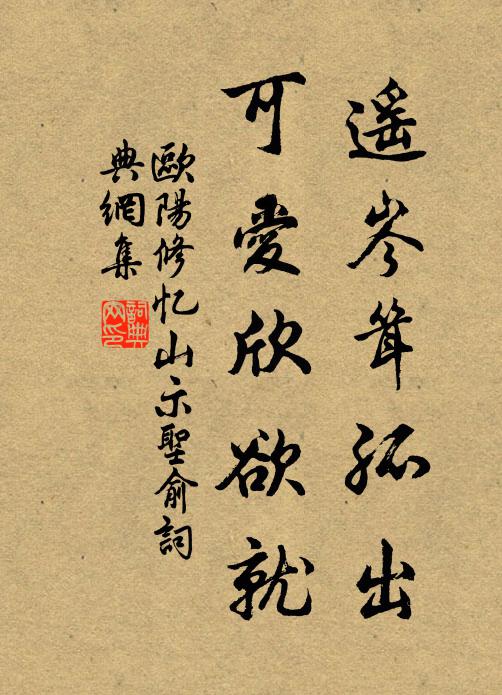 遥岑耸孤出
可愛欣欲就
歐陽修忆山示聖俞詞
典網集
詞典
网印